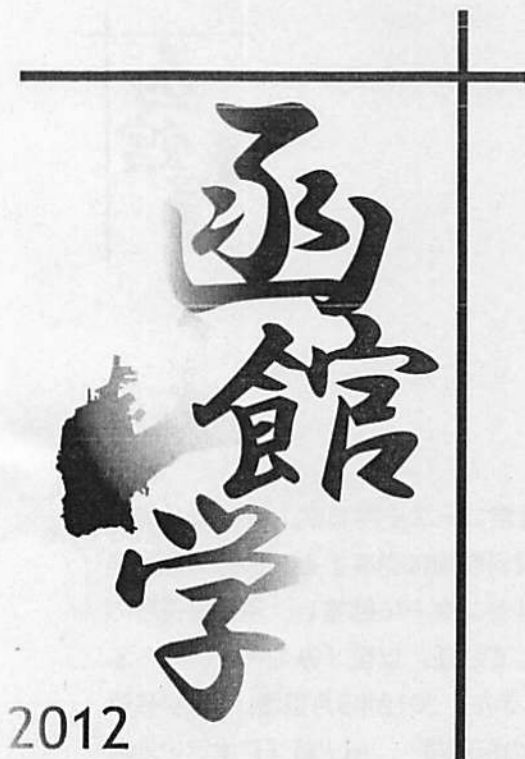 函館学
2012